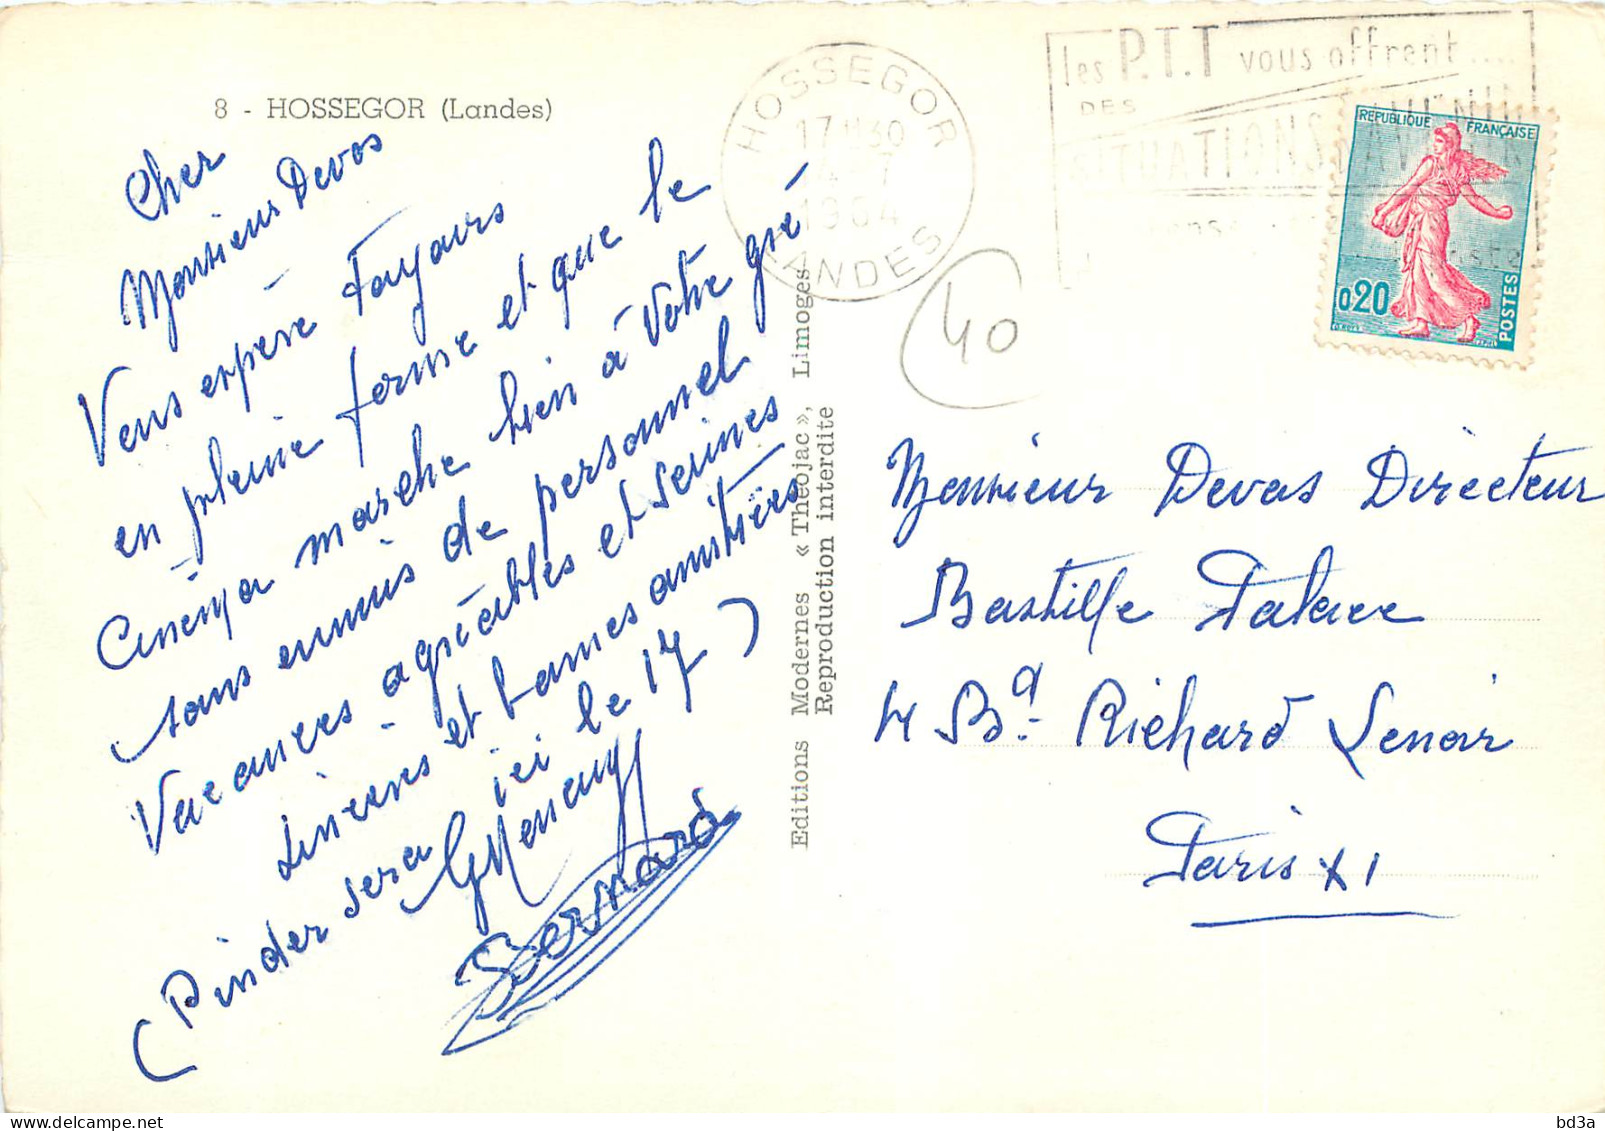 8 - HOSSEGOR (Landes)
Cher
Monsieur Devos
Vous espère Toujours
en pleine forme et que le
Cinéma marche bien à Votre gré
sans ennuis de personnel
Vacances agréables et sereines
Sincères et bonnes amitiés
(Pinder sera ici le 17)
Bernard
Editions Modernes « Théojac », Limoges
Reproduction interdite
HOSSEGOR
17 H30
14 - 7
1964
LANDES
les P.T.T vous offrent....
DES
SITUATIONS D'AVENIR
REPUBLIQUE FRANÇAISE
0,20
POSTES
40
Monsieur Devos Directeur
Bastille Palace
4 Bd. Richard Lenoir
Paris XI
delcampe.net
bd3a